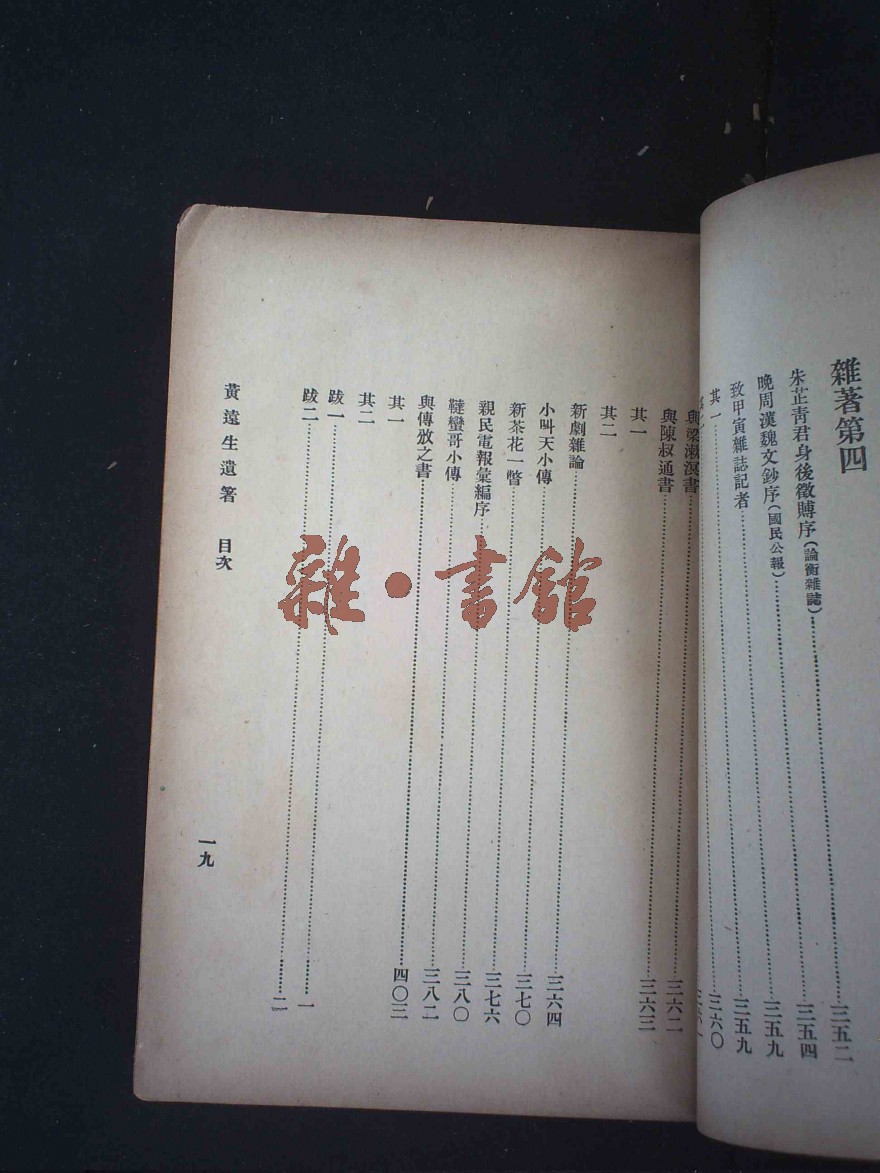 雜著第四
朱芷靑君身後徵賻序(論衡雜誌)…………三五二
晚周漢魏文鈔序(國民公報)…………三五四
致甲寅雜誌記者…………三五九
其一…………三五九
三六〇
與梁漱溟書…………三六二
與陳叔通書…………三六三
其一
其二
新劇雜論…………三六四
小叫天小傳…………三七〇
新茶花一瞥…………三七六
親民電報彙編序…………三八〇
韃蠻哥小傳…………三八二
與傳攽之書…………四〇三
其一
其二
跋一…………一
跋二…………二
黃遠生遺著 目次
一九
雜·書館